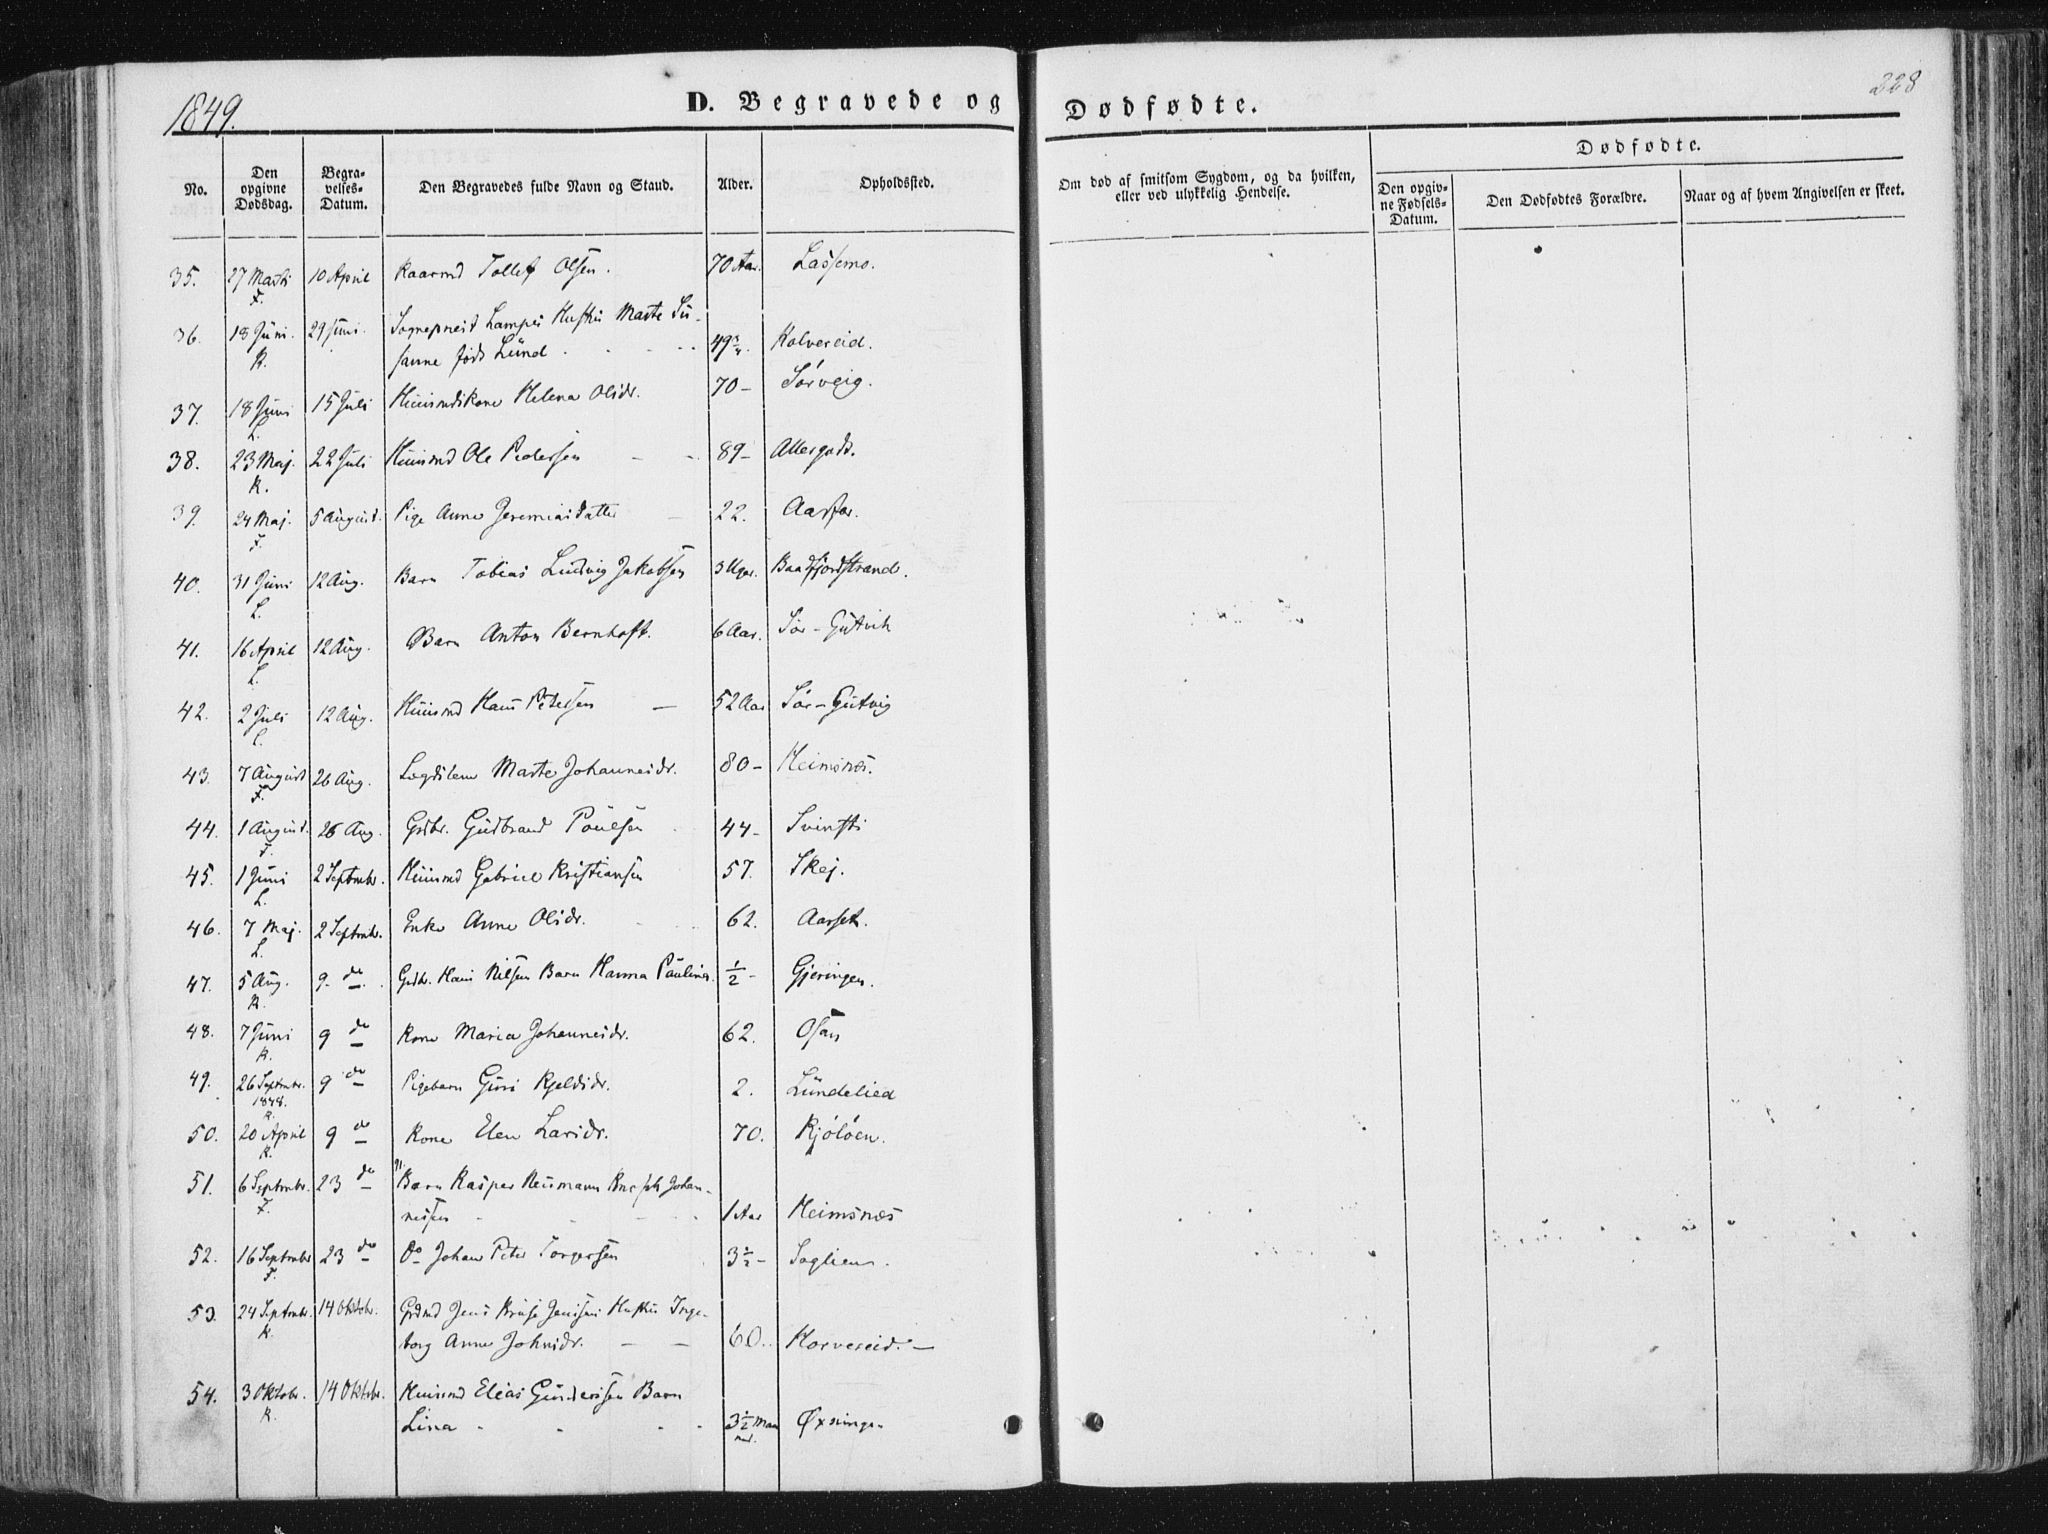 1849.
D. Begravede og Dødfødte.
228
No.
Den opgivne Dødsdag.
Begravelses-Datum.
Den Begravedes fulde Navn og Stand.
Alder.
Opholdssted.
Om død af smitsom Sygdom, og da hvilken, eller ved ulykkelig Hendelse.
Dødfødte.
Den opgivne Fødsels-Datum.
Den Dødfødtes Forældre.
Naar og af hvem Angivelsen er skeet.
35. 27 Marts F. 10 April Kaarmd Tollef Olsen. 70 Aar. Lassemo.
36. 18 Juni. K. 29 Juni. Sogneprest Lampes Hustru Marte Su-
sanne født Lund 49 3/4. Kolvereid.
37. 18 Juni L. 15 Juli Huusmdskone Helena Olsdr. 70 - Sørveig.
38. 23 Maj. K. 22 Juli Huusmd Ole Pedersen 89 -
39. 24 Maj. F. 5 August. Pige Anne Jeremiasdatter 22. Aarfor.
40. 31 Juni L. 12 Aug. Barn Tobias Ludvig Jakobsen 3 Uger. Baadfjordstrand.
41. 16 April L. 12 Aug. Barn Anton Bernhoft. 6 Aar. Sør-Gutvik
42. 2 Juli L. 12 Aug. Huusmd Hans Petersen 52 Aar Sør-Gutvig
43. 7 August F. 26 Aug. Lægdslem Marte Johannesdr. 80 - Heimsnæs.
44. 1 August. F. 26 Aug. Grdbr. Gudbrand Poulsen 44 -
45. 1 Juni L. 2 Septmbr. Huusmd Gabriel Kristiansen 57. Skej.
46. 7 Maj. L. 2 Septmbr. Enke Anne Olsdr. 62. Aarset.
47. 5 Aug. K. 9. do Grdbr. Hans Nilsen Barn Hanna Paulina. 1/2 - Gjeringen.
48. 7 Juni K. 9 do Kone Maria Johannesdr. 62. Osan
49. 26 Septmbr. 1848. K. 9 do Pigebarn Guri Kjeldsdr. 2. Lundelied
50. 20 April K. 9 do Kone Elen Larsdr. 70. Kjøløen.
51. 6 Septmbr. F. 23 do Barn Kasper Neumann Johan-
nessen 1 Aar Heimsnæs
52. 16 Septmbr F. 23 do Do Johan Peter Torgersen 3 1/2 - Saglien.
53. 24 Septmbr. K. 14 Oktobr. Grdmd Jens Kruse Jensens Hustru Inge-
borg Anne Johnsdr. 60. Horvereid. -
54. 3 Oktobr. K. 14 Oktobr. Huusmd Elias Gundersen Barn
Lina 3 1/2 Maaneder. Øxningen